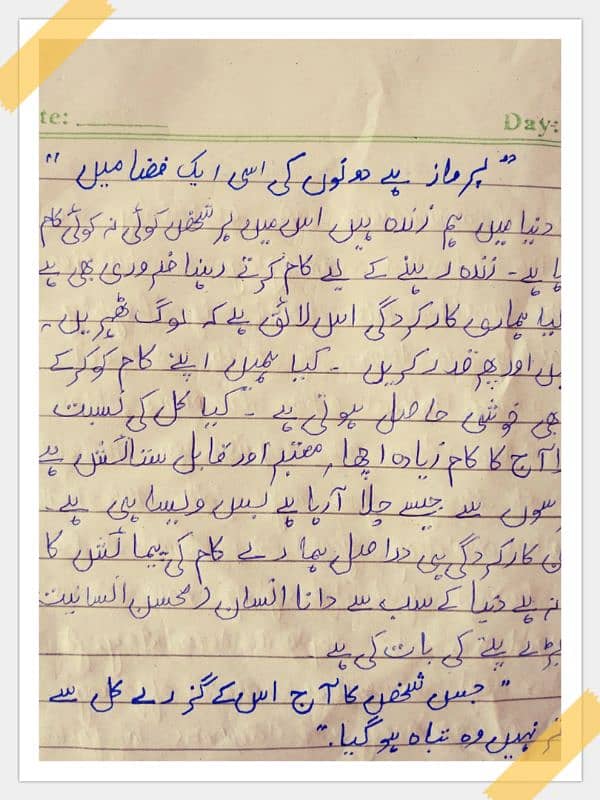 te: Day:
"پرواز ہے دونوں کی اسی ایک فضا میں"
دنیا میں ہم زندہ ہیں اس میں ہر شخص کوئی نہ کوئی کام
ہا ہے۔ زندہ رہنے کے لیے کام کرتے رہنا ضروری بھی ہے
کیا ہماری کارکردگی اس لائق ہے کہ لوگ ٹھہریں۔
اور پھر قدر کریں۔ کیا ہمیں اپنے کام کو کرکے
بھی خوشی حاصل ہوتی ہے۔ کیا کل کی نسبت
آج کا کام زیادہ اچھا، معتبر اور قابل ستائش ہے
سوں سے جیسے چلا آرہا ہے بس ویسا ہی ہے۔
کارکردگی ہی دراصل ہمارے کام کی پیمائش کا
نہ ہے دنیا کے سب سے دانا انسان (محسن انسانیت
بڑے پتے کی بات کی ہے
"جس شخص کا آج اس کے گزرے کل سے
نہیں وہ تباہ ہوگیا."